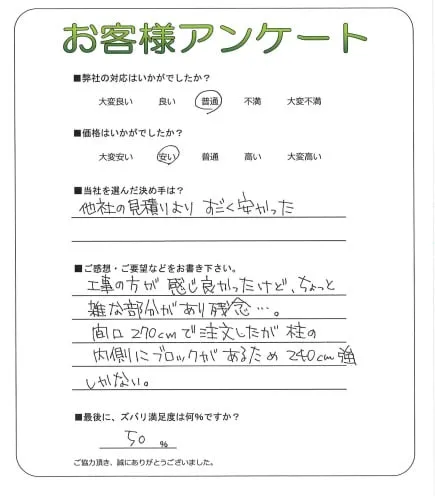 お客様アンケート
■弊社の対応はいかがでしたか?
大変良い 良い 普通 不満 大変不満
■価格はいかがでしたか?
大変安い 安い 普通 高い 大変高い
■当社を選んだ決め手は?
他社の見積りより すごく安かった
■ご感想・ご要望などをお書き下さい。
工事の方が 感じ良かったけど、ちょっと
雑な部分があり残念…。
間口 270cmで注文したが 柱の
内側にブロックがあるため 240cm強
しかない。
■最後に、ズバリ満足度は何%ですか?
50 %
ご協力頂き、誠にありがとうございました。